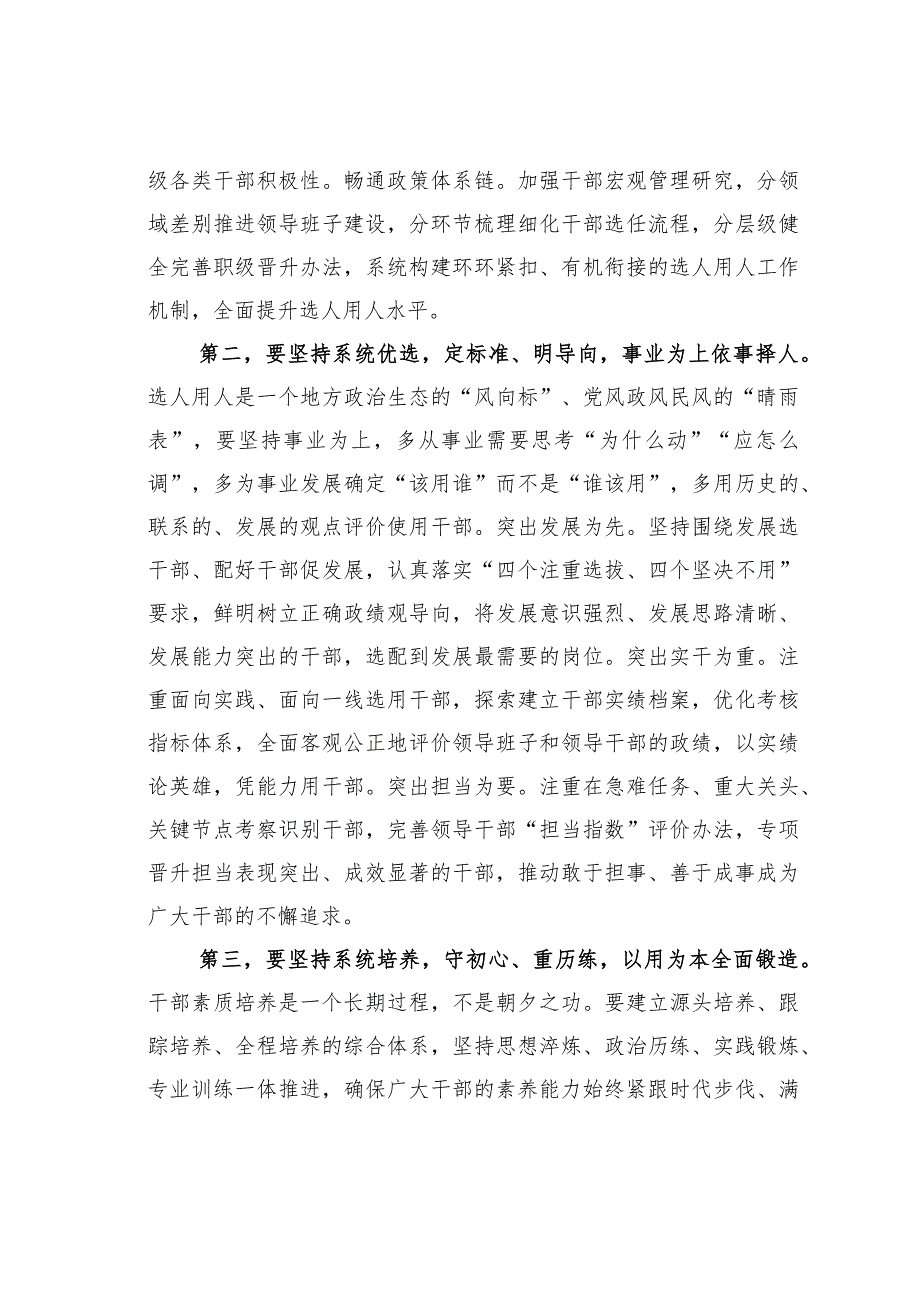 级各类干部积极性。畅通政策体系链。加强干部宏观管理研究，分领
域差别推进领导班子建设，分环节梳理细化干部选任流程，分层级健
全完善职级晋升办法，系统构建环环紧扣、有机衔接的选人用人工作
机制，全面提升选人用人水平。
第二，要坚持系统优选，定标准、明导向，事业为上依事择人。
选人用人是一个地方政治生态的“风向标”、党风政风民风的“晴雨
表”，要坚持事业为上，多从事业需要思考“为什么动”“应怎么
调”，多为事业发展确定“该用谁”而不是“谁该用”，多用历史的、
联系的、发展的观点评价使用干部。突出发展为先。坚持围绕发展选
干部、配好干部促发展，认真落实“四个注重选拔、四个坚决不用”
要求，鲜明树立正确政绩观导向，将发展意识强烈、发展思路清晰、
发展能力突出的干部，选配到发展最需要的岗位。突出实干为重。注
重面向实践、面向一线选用干部，探索建立干部实绩档案，优化考核
指标体系，全面客观公正地评价领导班子和领导干部的政绩，以实绩
论英雄，凭能力用干部。突出担当为要。注重在急难任务、重大关头、
关键节点考察识别干部，完善领导干部“担当指数”评价办法，专项
晋升担当表现突出、成效显著的干部，推动敢于担事、善于成事成为
广大干部的不懈追求。
第三，要坚持系统培养，守初心、重历练，以用为本全面锻造。
干部素质培养是一个长期过程，不是朝夕之功。要建立源头培养、跟
踪培养、全程培养的综合体系，坚持思想淬炼、政治历练、实践锻炼、
专业训练一体推进，确保广大干部的素养能力始终紧跟时代步伐、满